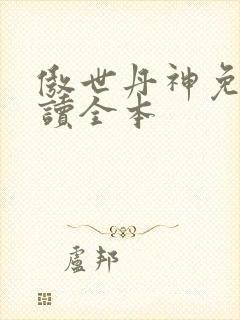 傲世丹神免
讀全本
盧邦